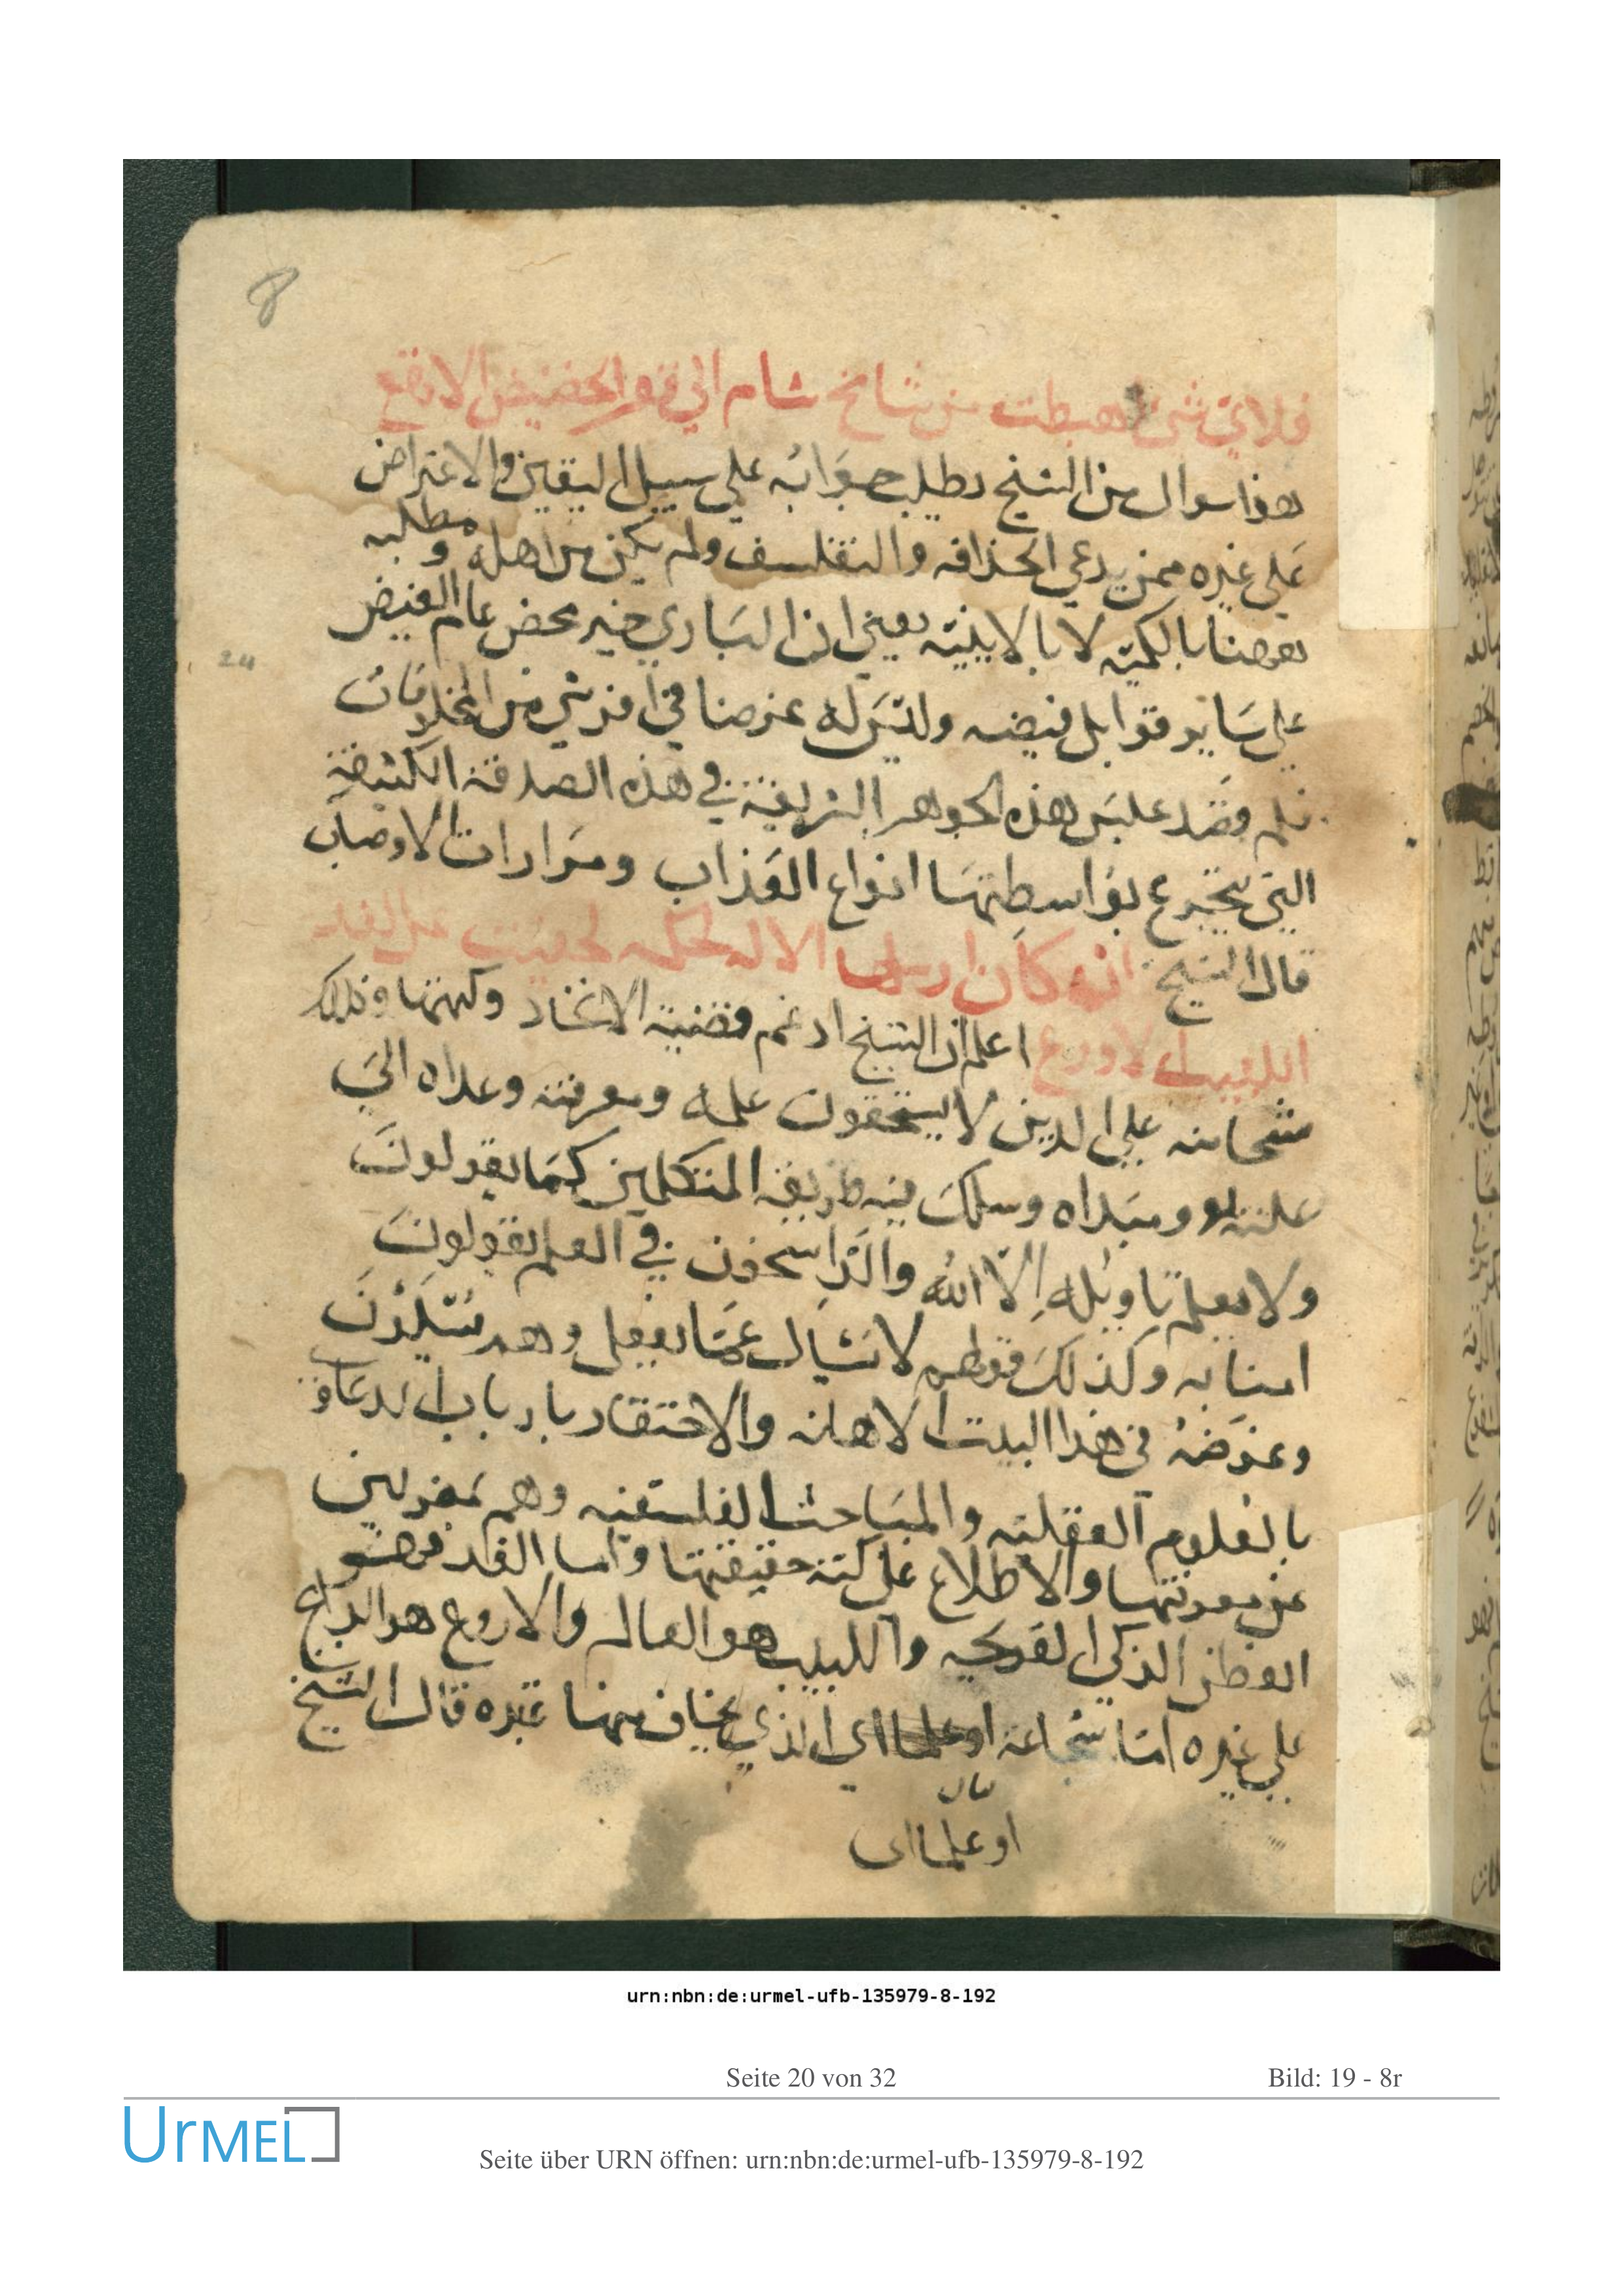 8
فلاي شئ اهبطت من شامخ شام الي قعر الحضيض الاوضع
هذا سوال من الشيخ يطلب جوابه علي سبيل اليقين والاعتراض
علي غيره ممن يدعي الحذاقه والتفلسف ولم يكن من اهله ومطلبه
بعرضنا بالكميّه لا بالاينيّه يعني ان الباري خير محض عام الفيض
24
علي ساير قوابل فيضه وليس له غرضا في اذي شي من المخلوقات
فلم وضد هذه الجواهر الشريفة في هذه الصدفة الكثيفة
التي تتجرع بواسطتها انواع العذاب ومرارات الاوصاب
قال الشيخ ان كان ارسلها الاله لحكمه خفيت عن الفد
اللبيب الاروع اعلم ان الشيخ ادغم قضية الاتحاد وكهنها وذلك
شحا منه علي الذين لا يستحقون علمه ومعرفته وعداه الي
علته ومبداه وسلك فيه طريقة المتكلمين كما يقولون
ولا يعلم تاويله الّا الله والراسخون في العلم يقولون
امنا به وكذلك قولهم لا يسأل عمّا يفعل وهم يسئلون
وغرضه في هذا البيت الاهانه والاحتقار بارباب الدعاوي
بالعلوم العقليه والمباحث الفلسفيه وهم بمعزلين
عن معرفتها والاطلاع علي كنه حقيقتها واما الفد فهو
الفطن الذكي القريحه واللبيب هو العالم والاروع هو الراجح
علي غيره اما شجاعة او علما اي الذي يخاف منها غيره قال الشيخ
بيان
او علما اي
urn:nbn:de:urmel-ufb-135979-8-192
Seite 20 von 32
Bild: 19 - 8r
UrMEL
Seite über URN öffnen: urn:nbn:de:urmel-ufb-135979-8-192